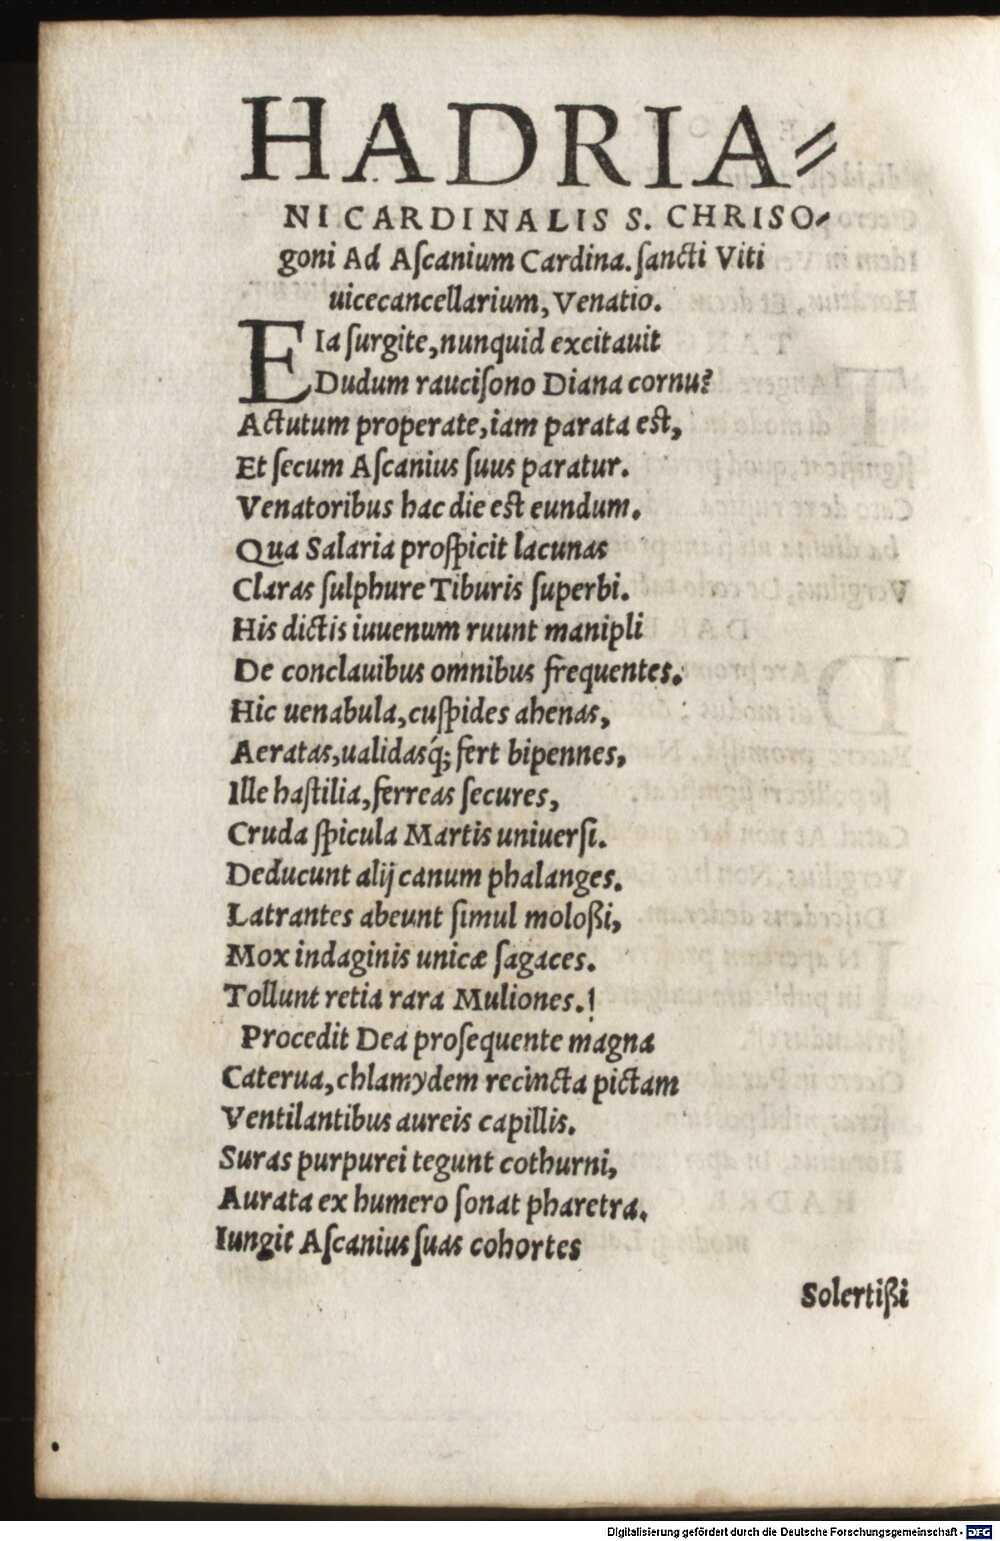 HADRIA⸗
NI CARDINALIS S. CHRISO⸗
goni Ad Aſcanium Cardina. ſancti Viti
uicecancellarium, Venatio.
EIa ſurgite, nunquid excitauit
Dudum rauciſono Diana cornu?
Actutum properate, iam parata est,
Et ſecum Aſcanius ſuus paratur.
Venatoribus hac die est eundum.
Qua Salaria proſpicit lacunas
Claras ſulphure Tiburis ſuperbi.
His dictis iuuenum ruunt manipli
De conclauibus omnibus frequentes.
Hic uenabula, cuſpides ahenas,
Aeratas, ualidasq́; fert bipennes,
Ille haſtilia, ferreas ſecures,
Cruda ſpicula Martis uniuerſi.
Deducunt alij canum phalanges.
Latrantes abeunt ſimul moloßi,
Mox indaginis unicæ ſagaces.
Tollunt retia rara Muliones.!
Procedit Dea proſequente magna
Caterua, chlamydem recincta pictam
Ventilantibus aureis capillis.
Suras purpurei tegunt cothurni,
Aurata ex humero ſonat pharetra.
Iungit Aſcanius ſuas cohortes
Solertißi
Digitalisierung gefördert durch die Deutsche Forschungsgemeinschaft - DFG